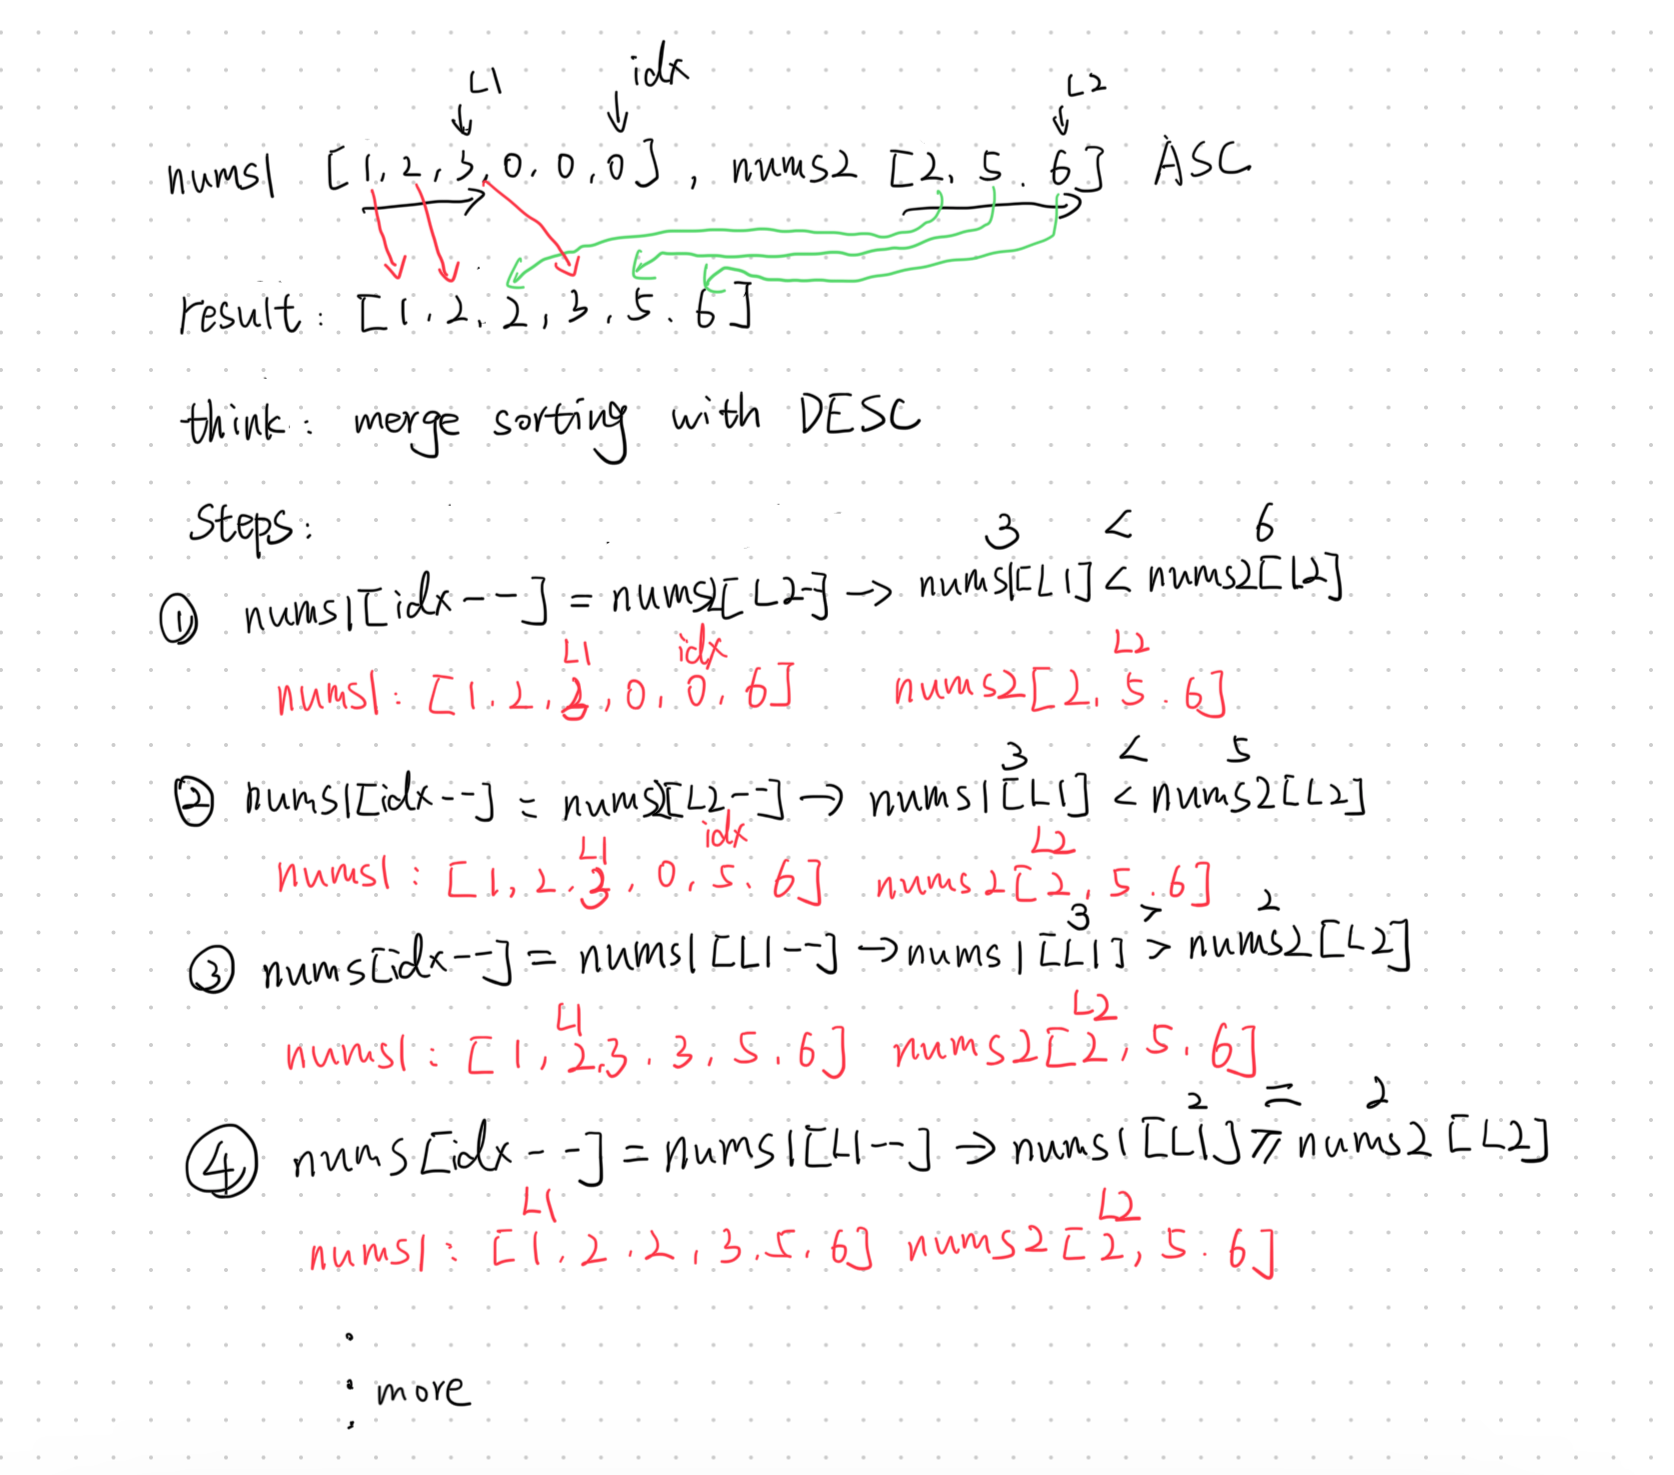 L1 idx L2
nums1 [1, 2, 3, 0, 0, 0], nums2 [2, 5. 6] ASC
result: [1. 2. 2, 3. 5. 6]
think: merge sorting with DESC
Steps:
3 < 6
① nums1[idx--] = nums2[L2--] → nums1[L1] < nums2[L2]
L1 idx L2
nums1: [1. 2, 3, 0, 0, 6] nums2[2, 5. 6]
3 < 5
② nums1[idx--] = nums2[L2--] → nums1[L1] < nums2[L2]
L1 idx L2
nums1: [1, 2. 3, 0, 5. 6] nums2[2, 5. 6]
3 > 2
③ nums[idx--] = nums1[L1--] → nums1[L1] > nums2[L2]
L1 L2
nums1: [1, 2, 3. 3, 5. 6] nums2[2, 5. 6]
2 = 2
④ nums[idx--] = nums1[L1--] → nums1[L1] ⩾ nums2[L2]
L1 L2
nums1: [1. 2. 2, 3. 5. 6] nums2[2, 5. 6]
more